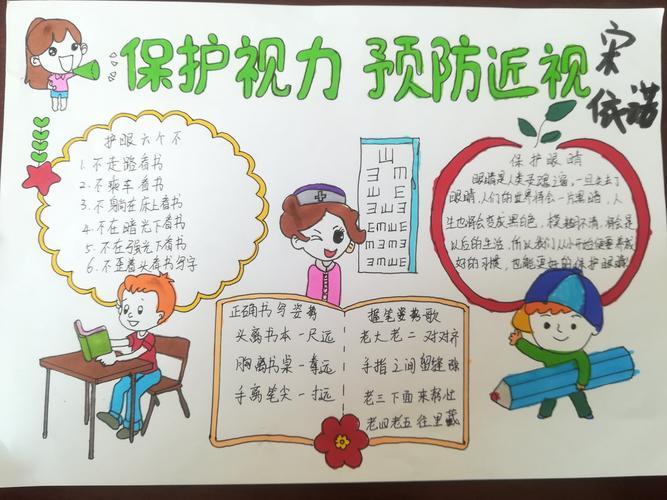 保护视力 预防近视
宋
依诺
护眼六个不
1.不走路看书
2.不乘车看书
3.不躺在床上看书
4.不在暗光下看书
5.不在强光下看书
6.不歪着头看书写字
正确书写姿势
头离书本一尺远
胸离书桌一拳远
手离笔尖一寸远
握笔姿势歌
老大老二对对齐
手指之间留缝隙
老三下面来帮忙
老四老五往里藏
保护眼睛
眼睛是人类灵魂窗,一旦失去了
眼睛,人们的世界将会一片黑暗,人
生也将会变成黑色,模糊不清,将会是
以后的生活,所以我们从小开始便要养成
好的习惯,也能更好的保护眼睛
山 E
E m
E m E